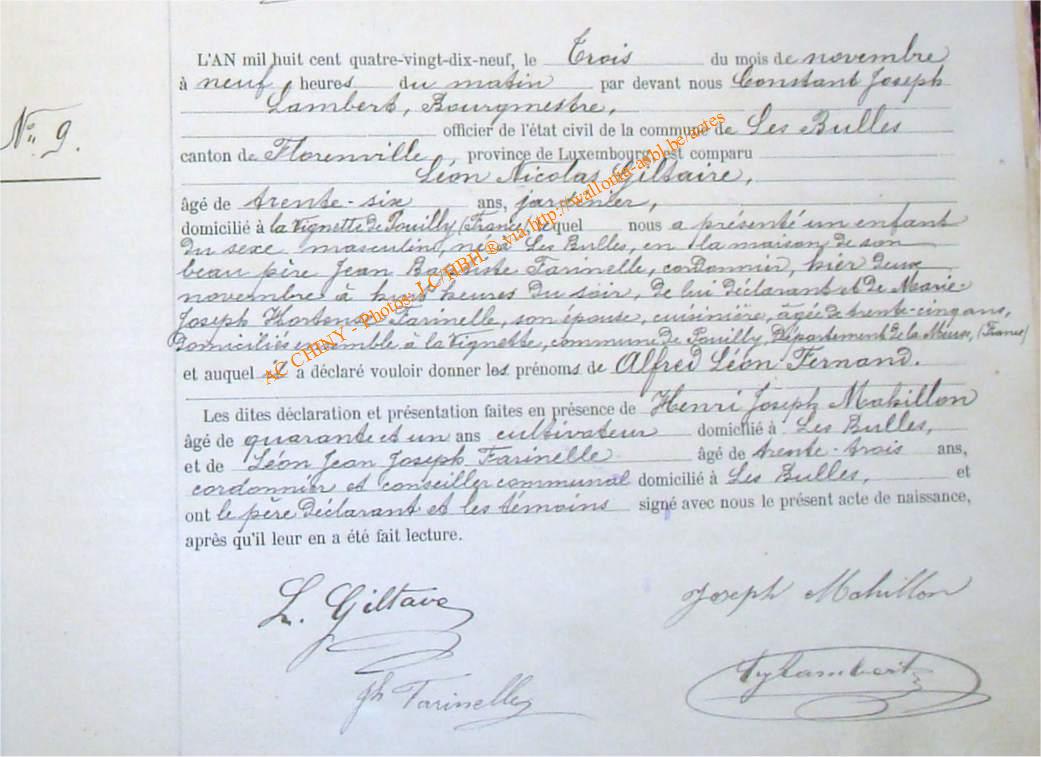 L'AN mil huit cent quatre-vingt-dix-neuf, le Trois du mois de novembre
à neuf heures du matin par devant nous Constant Joseph
Lambert, Bourgmestre,
officier de l'état civil de la commune de Les Bulles
canton de Florenville, province de Luxembourg, est comparu
Léon Nicolas Giltaire,
âgé de trente-six ans, jardinier,
domicilié à la Vignette de Pouilly (France) lequel nous a présenté un enfant
du sexe masculin, né à Les Bulles, en la maison de son
beau père Jean Baptiste Farinelle, cordonnier, hier deux
novembre à huit heures du soir, de lui déclarant et de Marie-
Joseph Hortense Farinelle, son épouse, cuisinière, âgée de trente-cinq ans,
domiciliés ensemble à la Vignette, commune de Pouilly, Département de la Meuse, (France)
et auquel il a déclaré vouloir donner les prénoms de Alfred Léon Fernand.
Les dites déclaration et présentation faites en présence de Henri Joseph Mahillon
âgé de quarante et un ans cultivateur domicilié à Les Bulles,
et de Léon Jean Joseph Farinelle âgé de trente-trois ans,
cordonnier et conseiller communal domicilié à Les Bulles, et
ont le père déclarant et les témoins signé avec nous le présent acte de naissance,
après qu'il leur en a été fait lecture.
N° 9.
AC CHINY - Photos: LC/HBH ® via http://wallonia-asbl.be/actes
L. Giltaire
Joseph Mahillon
Jh Farinelle
Lambert